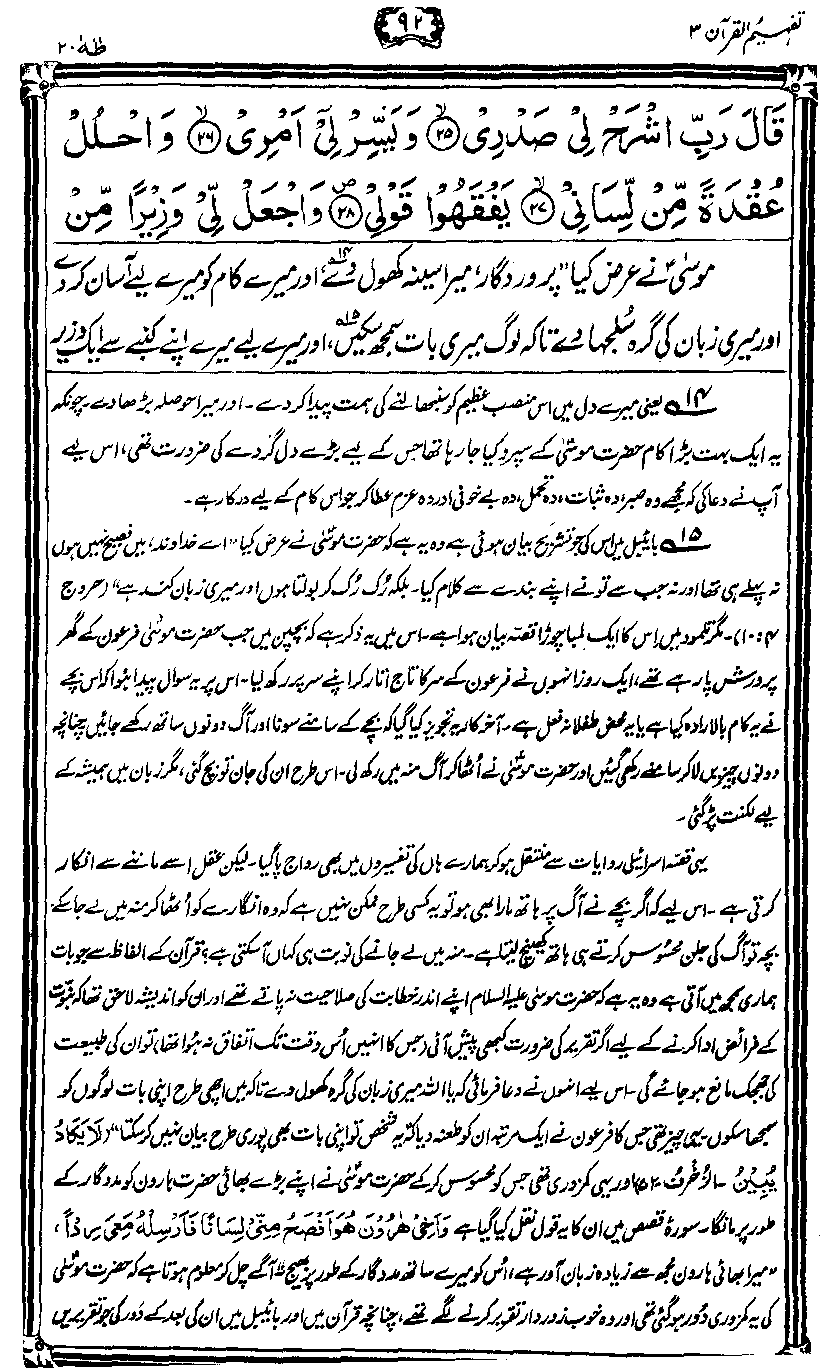 تفہیم القرآن ۳
۹۲
طٰهٰ ۲۰
قَالَ رَبِّ اشْرَحْ لِيْ صَدْرِيْ ۲۵ وَيَسِّرْ لِيْٓ اَمْرِيْ ۲۶ وَاحْلُلْ
عُقْدَةً مِّنْ لِّسَانِيْ ۲۷ يَفْقَهُوْا قَوْلِيْ ۲۸ وَاجْعَلْ لِّيْ وَزِيْرًا مِّنْ
موسیٰؑ نے عرض کیا ”پروردگار، میرا سینہ کھول دے۱۴، اور میرے کام کو میرے لیے آسان کر دے
اور میری زبان کی گرہ سُلجھا دے تاکہ لوگ میری بات سمجھ سکیں۱۵، اور میرے لیے میرے اپنے کنبے سے ایک وزیر
۱۴؎ یعنی میرے دل میں اس منصبِ عظیم کو سنبھالنے کی ہمت پیدا کر دے۔ اور میرا حوصلہ بڑھا دے چونکہ
یہ ایک بہت بڑا کام حضرت موسٰیؑ کے سپرد کیا جا رہا تھا جس کے لیے بڑے دل گردے کی ضرورت تھی، اس لیے
آپ نے دعا کی کہ مجھے وہ صبر، وہ ثبات، وہ تحمل، وہ بے خوفی اور وہ عزم عطا کر جو اس کام کے لیے درکار ہے۔
۱۵؎ بائیبل میں اس کی جو تشریح بیان ہوئی ہے وہ یہ ہے کہ حضرت موسٰیؑ نے عرض کیا ”اے خداوند، میں فصیح نہیں ہوں
نہ پہلے ہی تھا اور نہ جب سے تو نے اپنے بندے سے کلام کیا۔ بلکہ رُک رُک کر بولتا ہوں اور میری زبان کند ہے“ (خروج
۴: ۱۰)۔ مگر تلمود میں اِس کا ایک لمبا چوڑا قصّہ بیان ہوا ہے۔ اس میں یہ ذکر ہے کہ بچپن میں جب حضرت موسٰیؑ فرعون کے گھر
پرورش پا رہے تھے، ایک روز انہوں نے فرعون کے سر کا تاج اتار کر اپنے سر پر رکھ لیا۔ اس پر یہ سوال پیدا ہوا کہ اس بچے
نے یہ کام بالارادہ کیا ہے یا یہ محض طفلانہ فعل ہے۔ آخر کار یہ تجویز کیا گیا کہ بچے کے سامنے سونا اور آگ دونوں ساتھ رکھے جائیں چنانچہ
دونوں چیزیں لا کر سامنے رکھی گئیں اور حضرت موسٰیؑ نے اُٹھا کر آگ منہ میں رکھ لی۔ اس طرح ان کی جان تو بچ گئی، مگر زبان میں ہمیشہ کے
لیے لکنت پڑ گئی۔
یہی قصّہ اسرائیلی روایات سے منتقل ہو کر ہمارے ہاں کی تفسیروں میں بھی رواج پا گیا۔ لیکن عقل اسے ماننے سے انکار
کرتی ہے۔ اس لیے کہ اگر بچے نے آگ پر ہاتھ مارا بھی ہو تو یہ کسی طرح ممکن نہیں ہے کہ وہ انگارے کو اُٹھا کر منہ میں لے جا سکے۔
بچہ تو آگ کی جلن محسُوس کرتے ہی ہاتھ کھینچ لیتا ہے۔ منہ میں لے جانے کی نوبت ہی کہاں آ سکتی ہے؟ قرآن کے الفاظ سے جو بات
ہماری سمجھ میں آتی ہے وہ یہ ہے کہ حضرت موسٰی علیہ السلام اپنے اندر خطابت کی صلاحیت نہ پاتے تھے اور ان کو اندیشہ لاحق تھا کہ نبوّت
کے فرائض ادا کرنے کے لیے اگر تقریر کی ضرورت کبھی پیش آئی (جس کا انہیں اُس وقت تک اتفاق نہ ہُوا تھا)، تو ان کی طبیعت
کی جھجک مانع ہو جائے گی۔ اس لیے انہوں نے دعا فرمائی کہ یا اللہ میری زبان کی گرہ کھول دے تاکہ میں اچھی طرح اپنی بات لوگوں کو
سمجھا سکوں۔ یہی چیز تھی جس کا فرعون نے ایک مرتبہ ان کو طعنہ دیا کہ ”یہ شخص تو اپنی بات بھی پوری طرح بیان نہیں کر سکتا“ (لَا یَکَادُ
یُبِیْنُ ۔ الزُّخْرُف ۵۲) اور یہی کمزوری تھی جس کو محسُوس کر کے حضرت موسٰیؑ نے اپنے بڑے بھائی حضرت ہارون کو مددگار کے
طور پر مانگا۔ سورۂ قصص میں ان کا یہ قول نقل کیا گیا ہے وَاَخِیْ ھٰرُوْنُ ھُوَ اَفْصَحُ مِنِّیْ لِسَانًا فَاَرْسِلْہُ مَعِیَ رِدْاً،
”میرا بھائی ہارون مجھ سے زیادہ زبان آور ہے، اُس کو میرے ساتھ مددگار کے طور پر بھیج“۔ آگے چل کر معلوم ہوتا ہے کہ حضرت موسٰیؑ
کی یہ کمزوری دُور ہو گئی تھی اور وہ خوب زور دار تقریر کرنے لگے تھے، چنانچہ قرآن میں اور بائیبل میں ان کی بعد کے دَور کی جو تقریریں